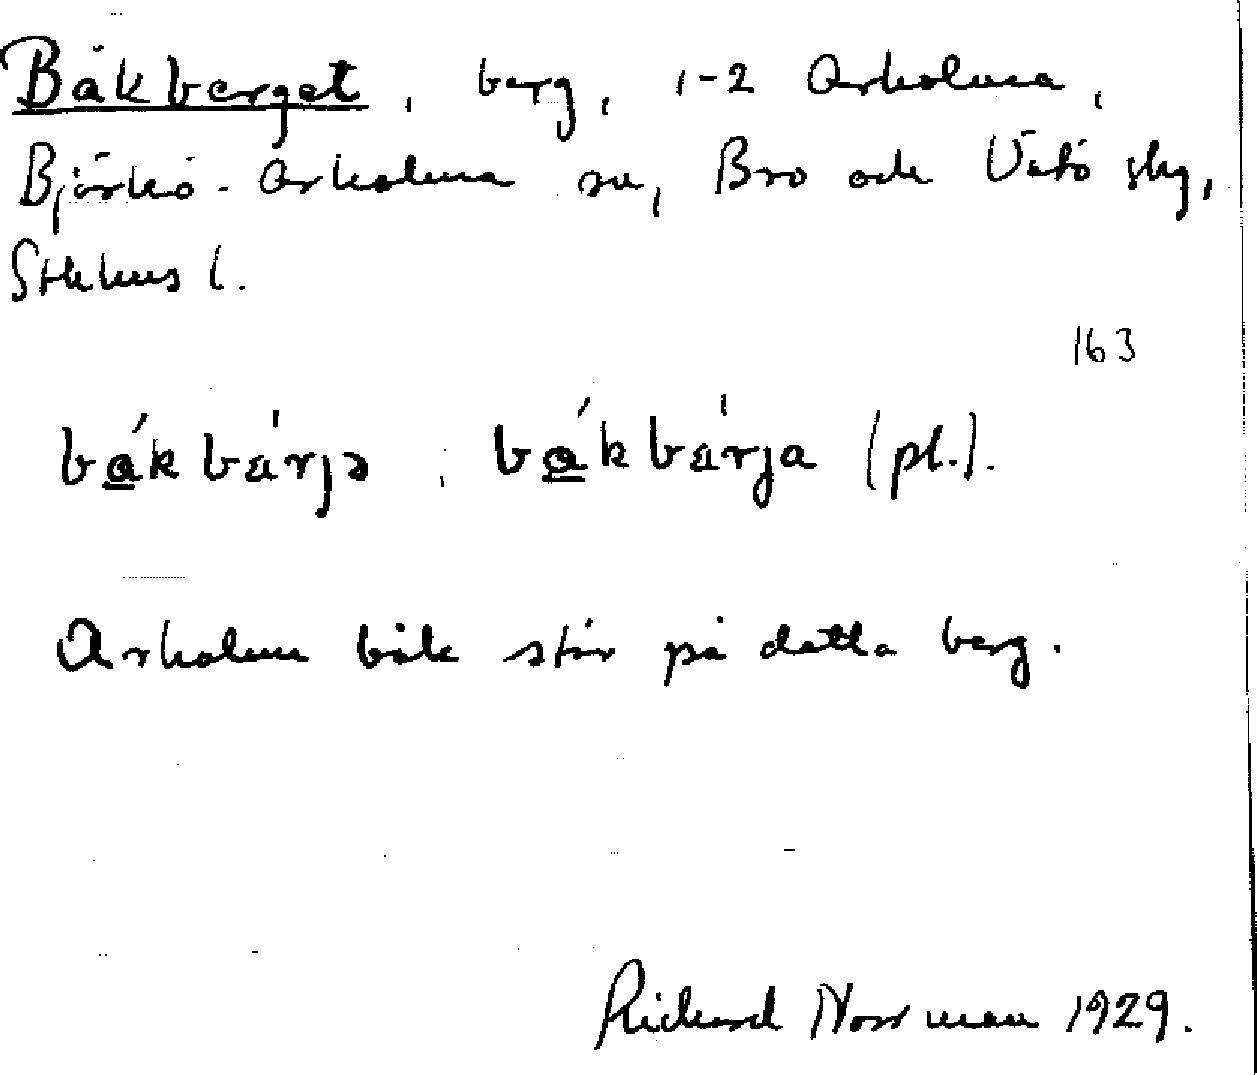 Båkberget, berg, 1-2 Arholma,
Björkö-Arholma sn, Bro och Vätö skg,
Sthlms l.
163
bǻkbárjə, bǻkbárja (pl.).
Arholma båk står på detta berg.
Richard Norrman 1929.